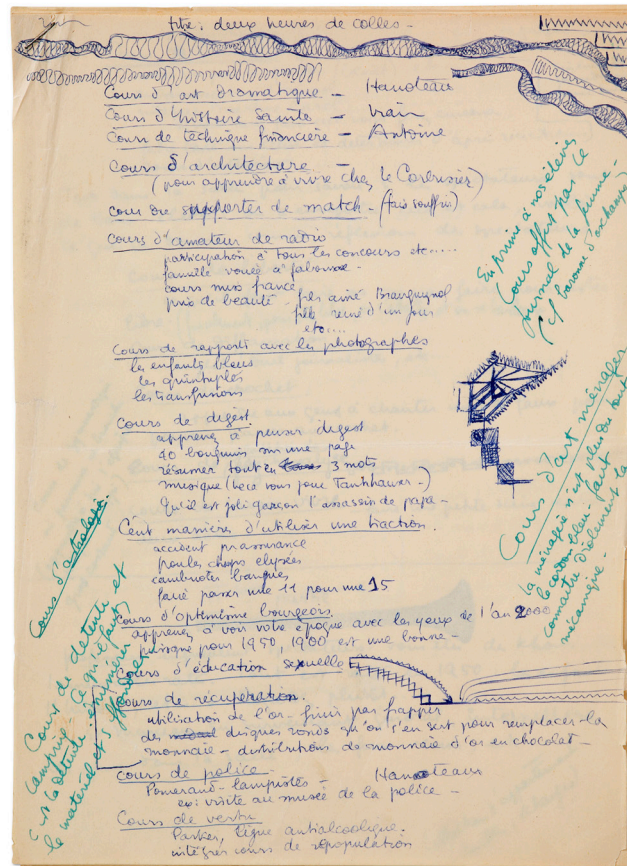 titre: deux heures de colles -
Cours d'art dramatique - Hanoteau
Cours d'histoire Sainte - Vrain
Cours de technique financière - Antoine
Cours d'architecture -
(pour apprendre à vivre chez le Corbusier)
cours de supporter de match - (fais souffrir)
Cours d'amateur de radio
participation à tous les concours etc.....
famille vouée à
cours miss france
prix de beauté - fils ainé Branquignol
fille reine d'un jour
etc....
Cours de rapports avec les photographes
les enfants bleus
les quintuplés
les transfusions
Cours de digest
apprenez à penser digest
40 bouquins sur une page
résumer tout en 3 mots
musique (bece vous joue Tannhauser -)
Qu'il est joli garçon l'assassin de papa -
Cent manières d'utiliser une traction.
accident pr assurance
poules champs elysées
cambriolet banques
faire passer une 11 pour une 15
Cours d'optimisme bourgeois
apprenez à voir votre époque avec les yeux de l'an 2000
puisque pour 1950, 1900 est une bonne -
Cours d'éducation sexuelle
Cours de récupération.
utilisation de l'or - finir par frapper
des disques ronds qu'on s'en sert pour remplacer la
monnaie - distributions de monnaie d'or en chocolat -
Cours de police - Hanoteau
Pomerand - lampistes -
ex: visite au musée de la police -
Cours de vertu
Parker, ligue antialcoolique.
intégrer cours de repopulation
En prime à nos élèves
Cours offert par le
journal de la femme -
(cf baronne d'orchamps)
Cours d'art ménager
la ménagère n'est plus du tout
le cordon bleu - faut
connaitre drôlement la
mécanique -
Cours d'astrologie.
Cours de détente et
campings - ce qu'il faut
c'est la détente - énumérer
le matériel et s'effondrer